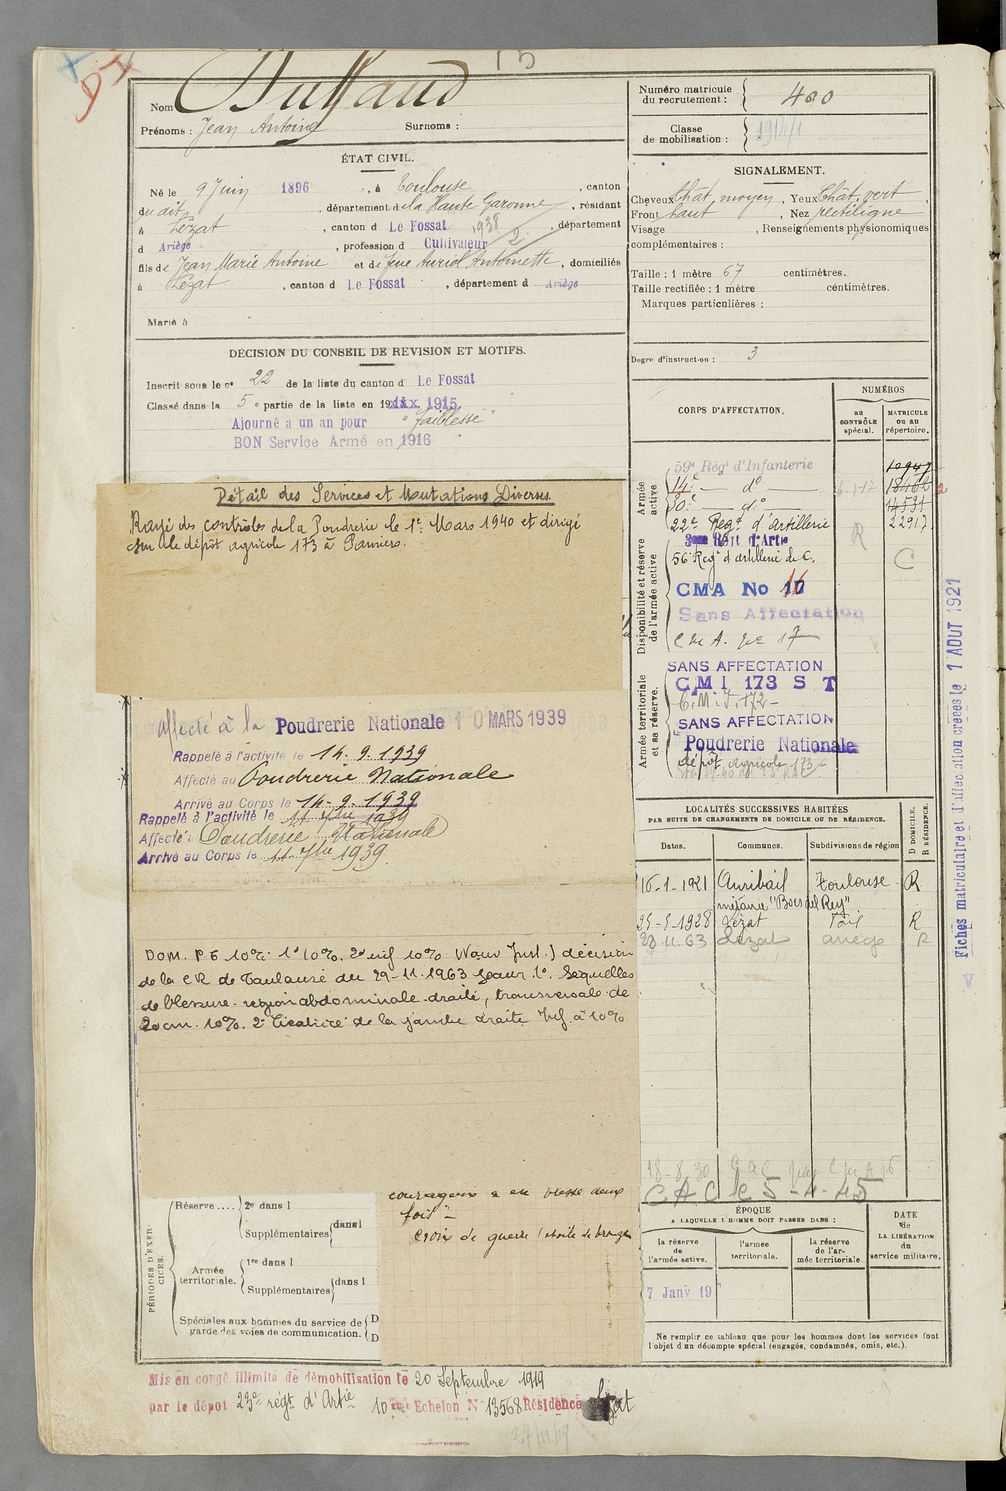 Nom
Prénoms : Jean Antoine Surnoms :
Numéro matricule du recrutement : 400
Classe de mobilisation : 1914/1
ÉTAT CIVIL.
Né le 9 Juin 1896, à Toulouse, canton
du dit, département de la Haute Garonne, résidant
à Lézat, canton d Le Fossat, département
d Ariège, profession d Cultivateur
fils de Jean Marie Antoine et de feue Auriol Antoinette, domiciliés
à Lézat, canton d Le Fossat, département d Ariège
Marié à
SIGNALEMENT.
Cheveux Chat. moyen, Yeux Chât. vert,
Front haut, Nez rectiligne
Visage , Renseignements physionomiques
complémentaires :
Taille : 1 mètre 67 centimètres.
Taille rectifiée : 1 mètre centimètres.
Marques particulières :
Degré d'instruction : 3
DÉCISION DU CONSEIL DE REVISION ET MOTIFS.
Inscrit sous le n° 22 de la liste du canton d Le Fossat
Classé dans la 5e partie de la liste en 19 1915.
Ajourné a un an pour "faiblesse"
BON Service Armé en 1916
Détail des Services et Mutations Diverses.
Rayé des contrôles de la Poudrerie le 1er Mars 1940 et dirigé
sur le dépôt agricole 173 à Pamiers.
affecté à la Poudrerie Nationale 10 MARS 1939
Rappelé à l'activité le 14.9.1939
Affecté au Poudrerie Nationale
Arrivé au Corps le 14-9-1939
Rappelé à l'activité le 11 7bre 1939
Affecté : Poudrerie Nationale
Arrivé au Corps le 11 7bre 1939.
de la CR de Toulouse du 29-11-1963 pour 1° Séquelles
de blessure région abdominale droite, transversale de
20 cm. 10%. 2° Cicatrice de la jambe droite Inf. à 10%
courageux a été blessé deux
fois" –
Croix de guerre étoile de bronze
CORPS D'AFFECTATION.
NUMÉROS
AU CONTRÔLE spécial.
MATRICULE ou au répertoire.
Armée active
59e Régt d'Infanterie
14e — d°
— d°
22e Régt d'artillerie
Disponibilité et réserve de l'armée active
56e Regt d'artillerie de C.
CMA No
Sans Affectation
C M A. no 17
Armée territoriale et sa réserve.
SANS AFFECTATION
CMI 173 S T
C.M.I. 172-
SANS AFFECTATION
Poudrerie Nationale
dépôt agricole 173
R
C
LOCALITÉS SUCCESSIVES HABITÉES
PAR SUITE DE CHANGEMENTS DE DOMICILE OU DE RÉSIDENCE.
D DOMICILE. R RÉSIDENCE.
Dates. Communes. Subdivisions de région
16-1-1921 Auribail Toulouse R
métairie "Bois del Rey"
25-5-1928 Lézat Foix R
29.11.63 Lézat ariège R
C A C le 5-4-45
ÉPOQUE
A LAQUELLE L'HOMME DOIT PASSER DANS :
la réserve de l'armée active.
l'armée territoriale.
la réserve de l'armée territoriale.
DATE de LA LIBÉRATION du service militaire.
7 Janv 19
Ne remplir ce tableau que pour les hommes dont les services font
l'objet d'un décompte spécial (engagés, condamnés, omis, etc.).
PÉRIODES D'EXERCICES.
Réserve .... 2e dans l
Supplémentaires dans l
Armée territoriale. 1re dans l
Supplémentaires dans l
Spéciales aux hommes du service de garde des voies de communication. D
D
Mis en congé illimité de démobilisation le 20 Septembre 1919
par le dépôt 23e régt. d'Artie 10eme Echelon N° 13568 Résidence Lézat
Fiches matriculaire et d'affectation créées le 1 AOUT 1921